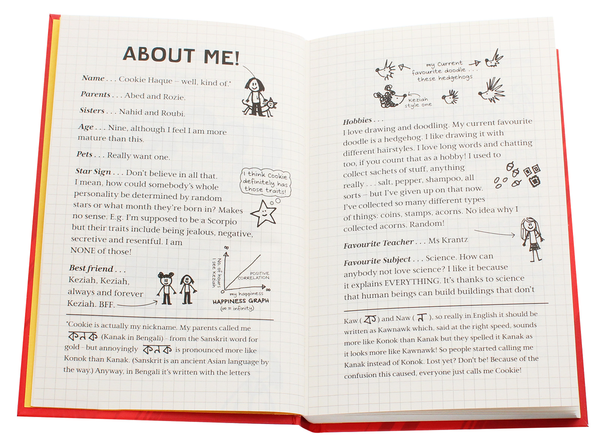 ABOUT ME!
Name . . . Cookie Haque – well, kind of.*
Parents . . . Abed and Rozie.
Sisters . . . Nahid and Roubi.
Age . . . Nine, although I feel I am more
mature than this.
Pets . . . Really want one.
Star Sign . . . Don't believe in all that.
I mean, how could somebody's whole
personality be determined by random
stars or what month they're born in? Makes
no sense. E.g. I'm supposed to be a Scorpio
but their traits include being jealous, negative,
secretive and resentful. I am
NONE of those!
I think Cookie
definitely has
those traits!
Best friend . . .
Keziah, Keziah,
always and forever
Keziah. BFF.
No. of hours
I see Keziah
POSITIVE
CORRELATION
my happiness
HAPPINESS GRAPH
*Cookie is actually my nickname. My parents called me
কনক (Kanak in Bengali) – from the Sanskrit word for
gold – but annoyingly কনক is pronounced more like
Konok than Kanak. (Sanskrit is an ancient Asian language by
the way.) Anyway, in Bengali it's written with the letters
my current
favourite doodle . . .
these hedgehogs
Keziah
style one
Hobbies . . .
I love drawing and doodling. My current favourite
doodle is a hedgehog. I like drawing it with
different hairstyles. I love long words and chatting
too, if you count that as a hobby! I used to
collect sachets of stuff, anything
really . . . salt, pepper, shampoo, all
sorts – but I've given up on that now.
I've collected so many different types
of things: coins, stamps, acorns. No idea why I
collected acorns. Random!
Favourite Teacher . . . Ms Krantz
Favourite Subject . . . Science. How can
anybody not love science? I like it because
it explains EVERYTHING. It's thanks to science
that human beings can build buildings that don't
Kaw (ক) and Naw (ন), so really in English it should be
written as Kawnawk which, said at the right speed, sounds
more like Konok than Kanak but they spelled it Kanak as
it looks more like Kawnawk! So people started calling me
Kanak instead of Konok. Lost yet? Don't be! Because of the
confusion this caused, everyone just calls me Cookie!